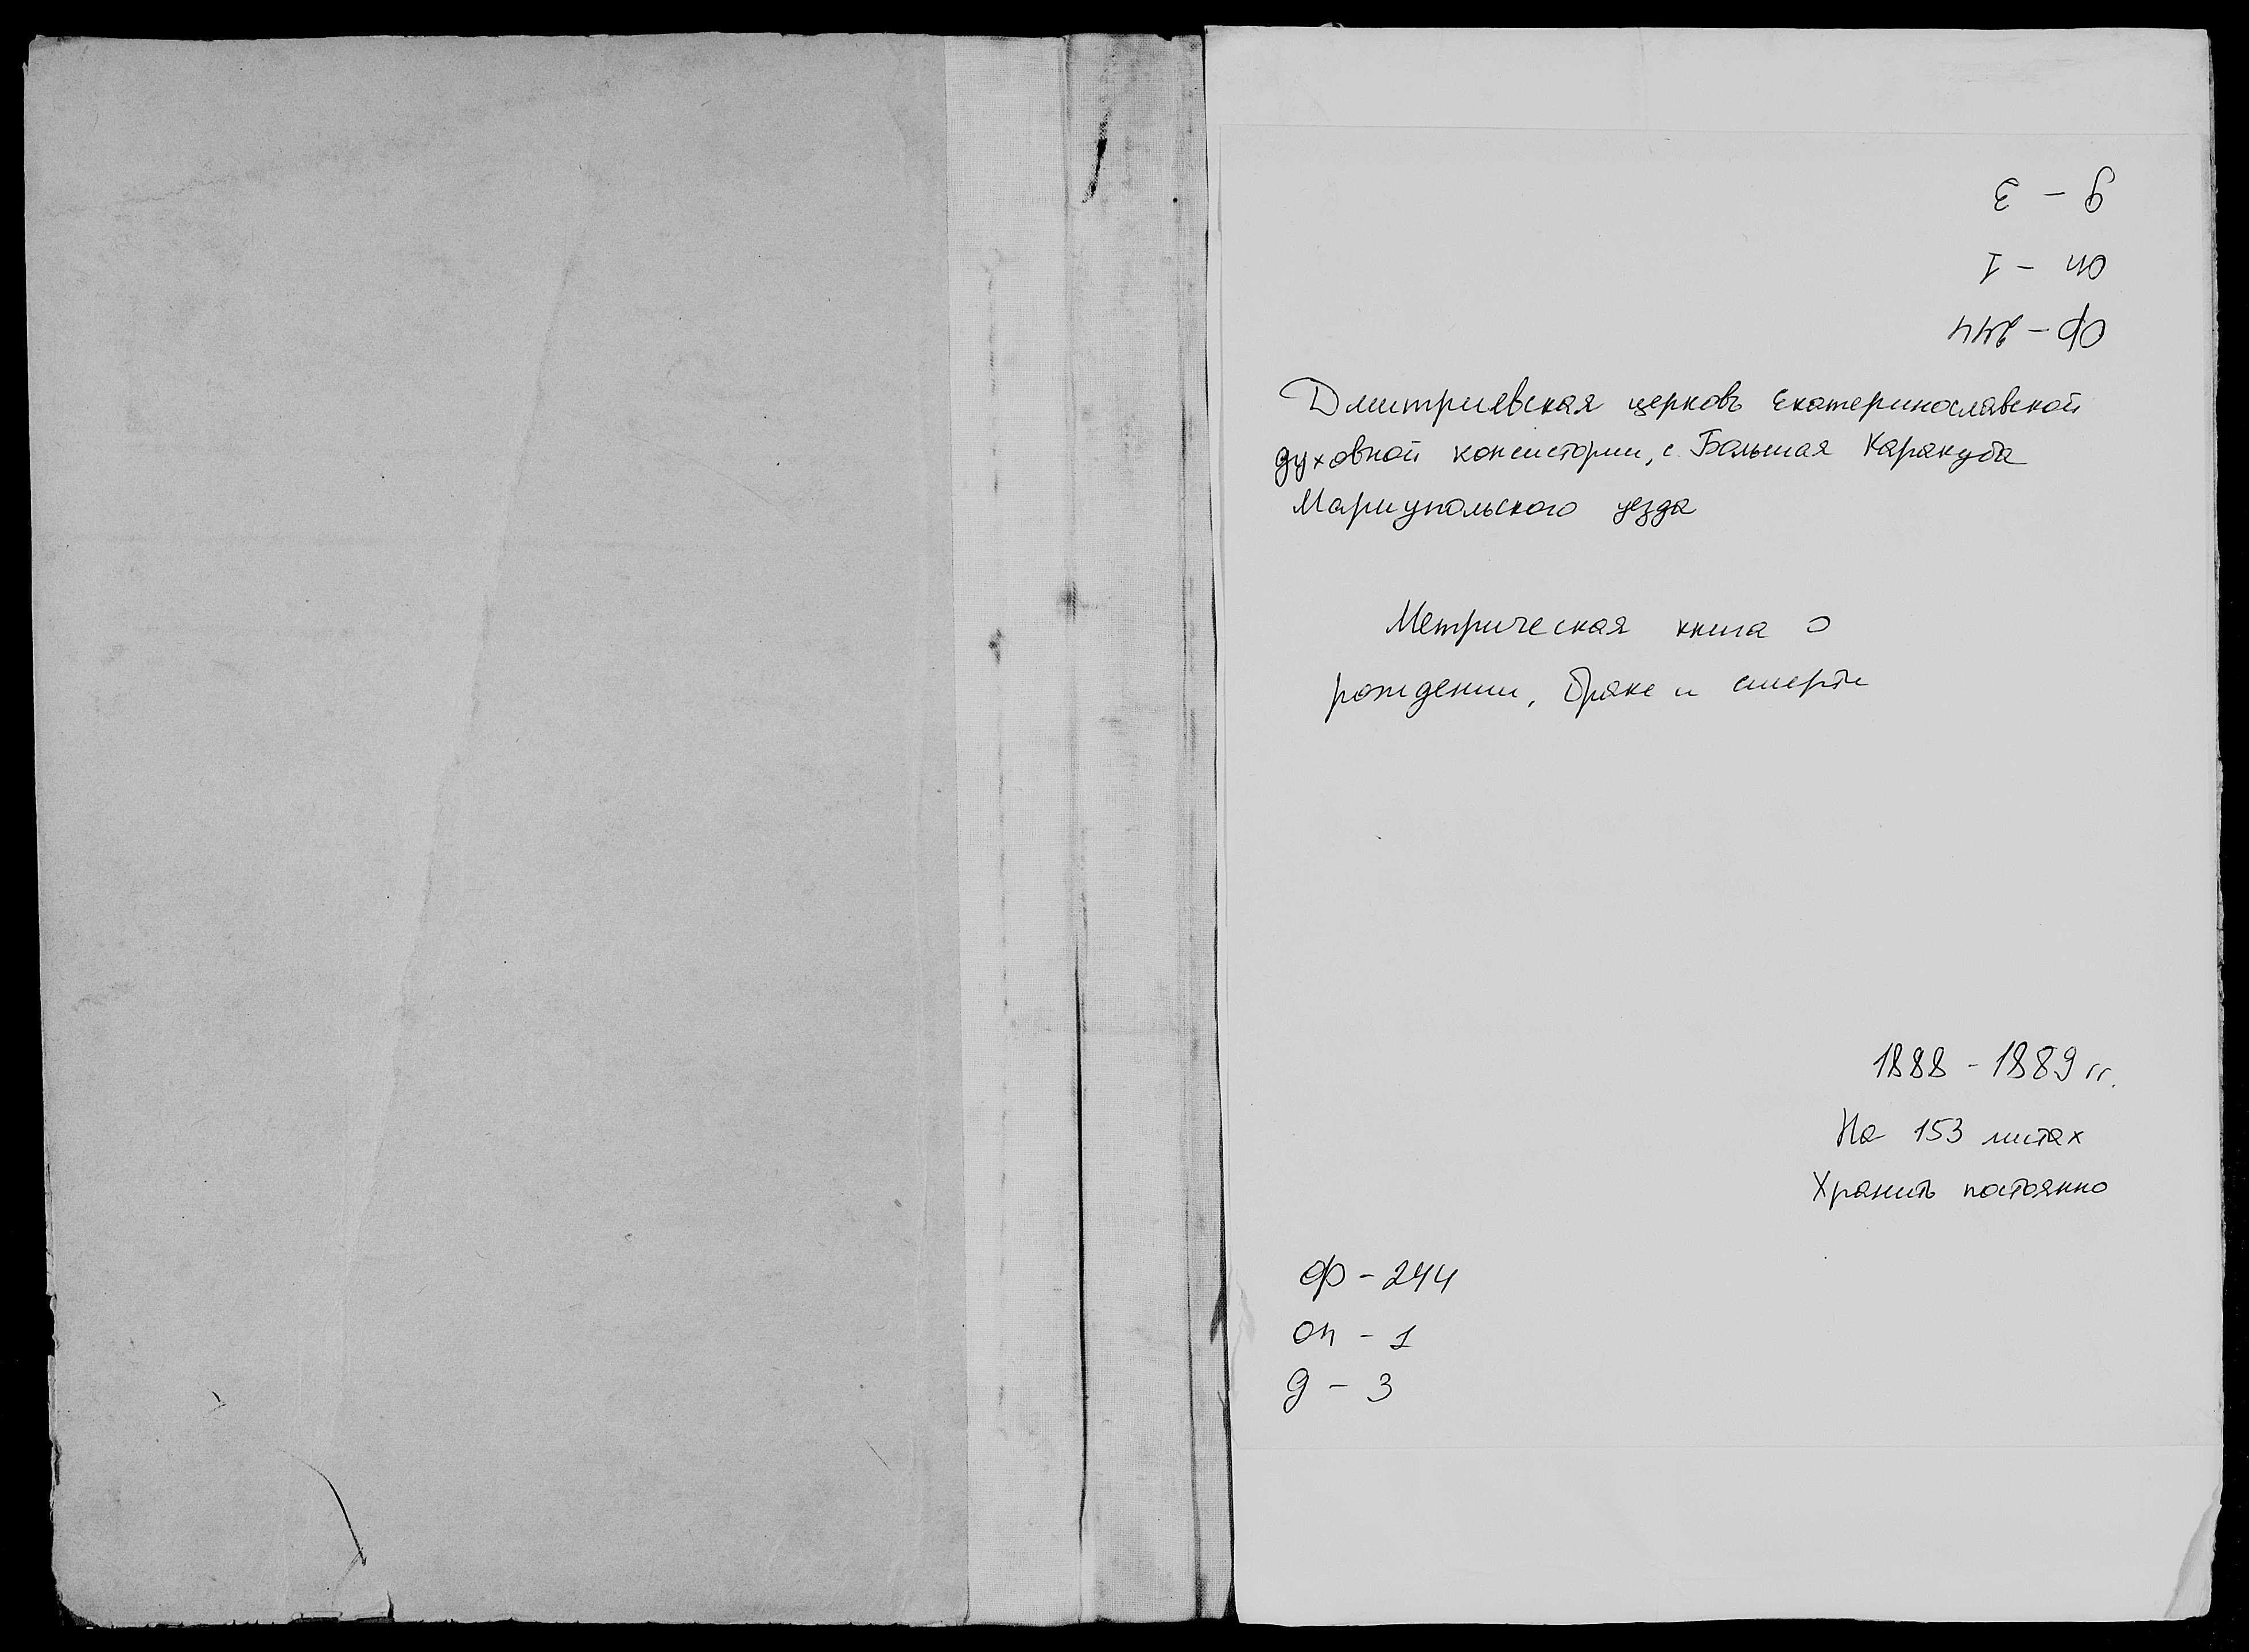 д - 3
оп - 1
Ф - 244
Дмитриевская церковь Екатеринославской
духовной консистории, с. Большая Каракуба
Мариупольского уезда
Метрическая книга о
рождении, браке и смерти
1888 - 1889 гг.
На 153 листах
Хранить постоянно
Ф - 244
оп - 1
д - 3